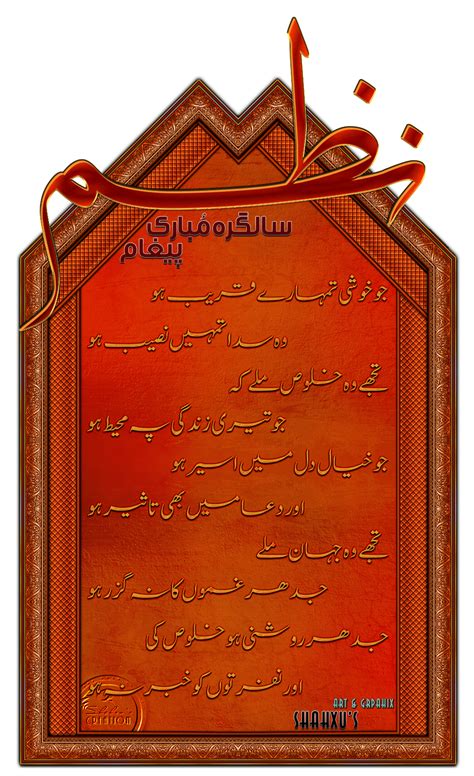 نظم
سالگرہ مُبارک
پیغام
جو خوشی تمہارے قریب ہو
وہ سدا تمہیں نصیب ہو
تجھے وہ خلوص ملے کہ
جو تیری زندگی پہ محیط ہو
جو خیال دل میں اسیر ہو
اور دعا میں بھی تاثیر ہو
تجھے وہ جہان ملے
جدھر غموں کا نہ گزر ہو
جدھر روشنی ہو خلوص کی
اور نفرتوں کو خبر نہ ہو
CREATION
ART & GRPAHIX
SHAHXU'S